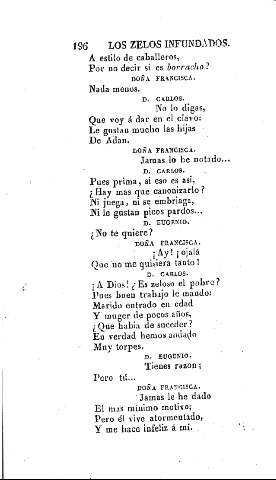 196 LOS ZELOS INFUNDADOS.
A estilo de caballeros,
Por no decir si es borracho?
DOÑA FRANCISCA.
Nada menos.
D. CARLOS.
No lo digas,
Que voy á dar en el clavo:
Le gustan mucho las hijas
De Adan.
DOÑA FRANCISCA.
Jamas lo he notado...
D. CARLOS.
Pues prima, si eso es asi,
¿Hay mas que canonizarlo?
Ni juega, ni se embriaga,
Ni le gustan picos pardos...
D. EUGENIO.
¿No te quiere?
DOÑA FRANCISCA.
¡Ay! ¡ojalá
Que no me quisiera tanto!
D. CARLOS.
¡A Dios! ¿Es zeloso el pobre?
Pues buen trabajo le mando:
Marido entrado en edad
Y muger de pocos años,
¿Que habia de suceder?
En verdad hemos andado
Muy torpes.
D. EUGENIO.
Tienes razon;
Pero tú...
DOÑA FRANCISCA.
Jamas le he dado
El mas mínimo motivo;
Pero él vive atormentado,
Y me hace infeliz á mi.